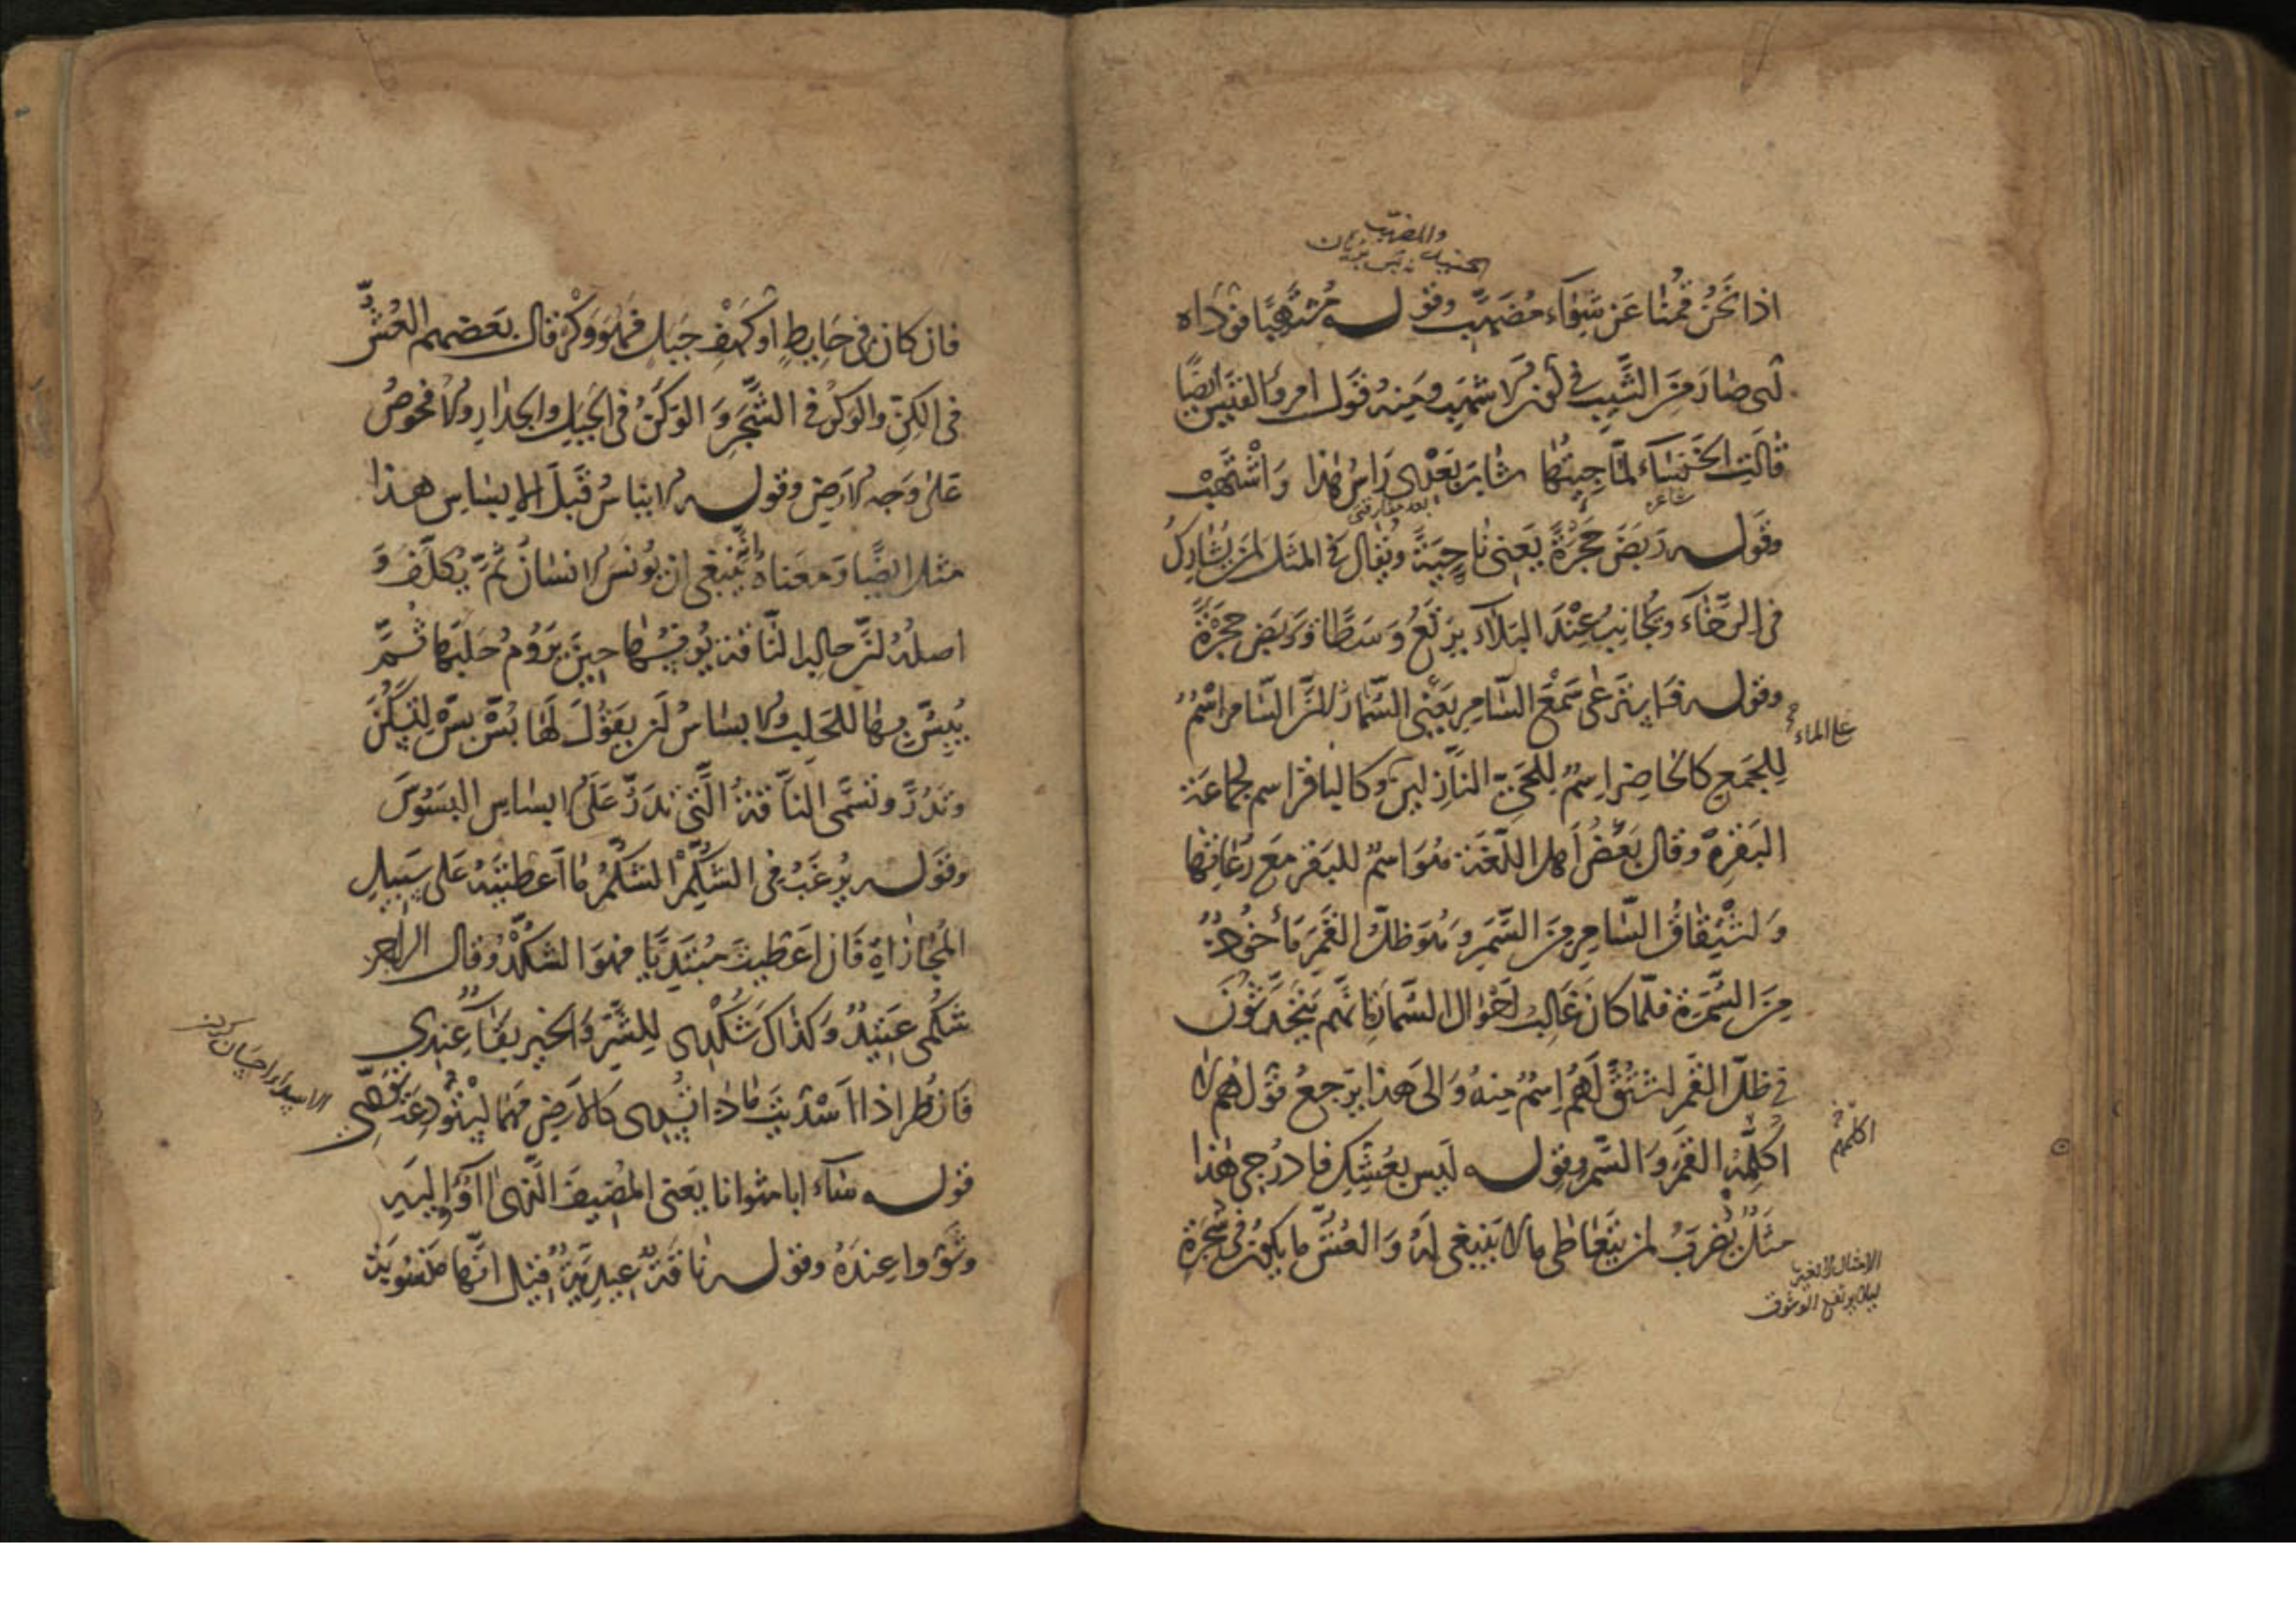 والمضهب
اذا نحن قمنا عن شواء مضهب وقوله مشتهبا فوداه
اى صار من الشيب فى لون الاشهب ومنه قول امرؤ القيس ايضًا
قالت الخنساء لمّا جئتها شاب بعدى راس هذا واشتهب
شاعره
بعد مفارقتى
وقوله ربض حجرة يعنى ناحية ويقال فى المثل لمن يشارك
فى الرخاء ويجانب عند البلاء يرتع وسطا ويربض حجرة
وقوله فاسترعى سمع السامر يعنى السمار لان السامر اسم
للجمع كالحاضر اسم للحى النازلين وكالباقر اسم لجماعة
على الماء
البقرة وقال بعض اهل اللغة هو اسم للبقر مع رعاتها
واشتقاق السامر من السمر وهو ظل القمر ماخوذ
من السمرة فلما كان غالب احوال السمار انهم يتحدثون
فى ظل القمر اشتق لهم اسم منه والى هذا يرجع قولهم لا
اكلمه القمر والسمر وقوله ليس بعشك فادرجى هذا
اكلمهم
مثل يضرب لمن يتعاطى ما لا ينبغى له والعش ما يكون فى شجرة
الامثال لا تغير
ليلا يرتفع الوثوق
فان كان فى حايط او كهف جبل فهو وكر وقال بعضهم العش
فى الكن والوكر فى الشجر والوكن فى الجبل والجدار والافحوص
على وجه الارض وقوله الايناس قبل الابساس هذا
مثل ايضًا ومعناه انه ينبغى ان يونس الانسان ثم يكلف و
اصله لان حالب الناقة يونسها حين يروم حلبها ثم
يبس بها للحلب والابساس ان يقول لها بس بس لتسكن
وتدرّ وتسمى الناقة التى تدر على الابساس البسوس
وقوله يرغب فى الشكم الشكم ما اعطيته على سبيل
المجازاة فان اعطيت مبتديا فهو الشكد وقال الراجز
شكمى عتيد وكذاك شكدى للشر والخير بقاء عندى
فانظر اذا اسديت ماذا تسدى كالارض مهما ليثود عندى
قوله ساء ابا مثوانا يعنى المضيف الذى آووا اليه
وثووا عنده وقوله ناقة عيدية قيل انها منسوبة